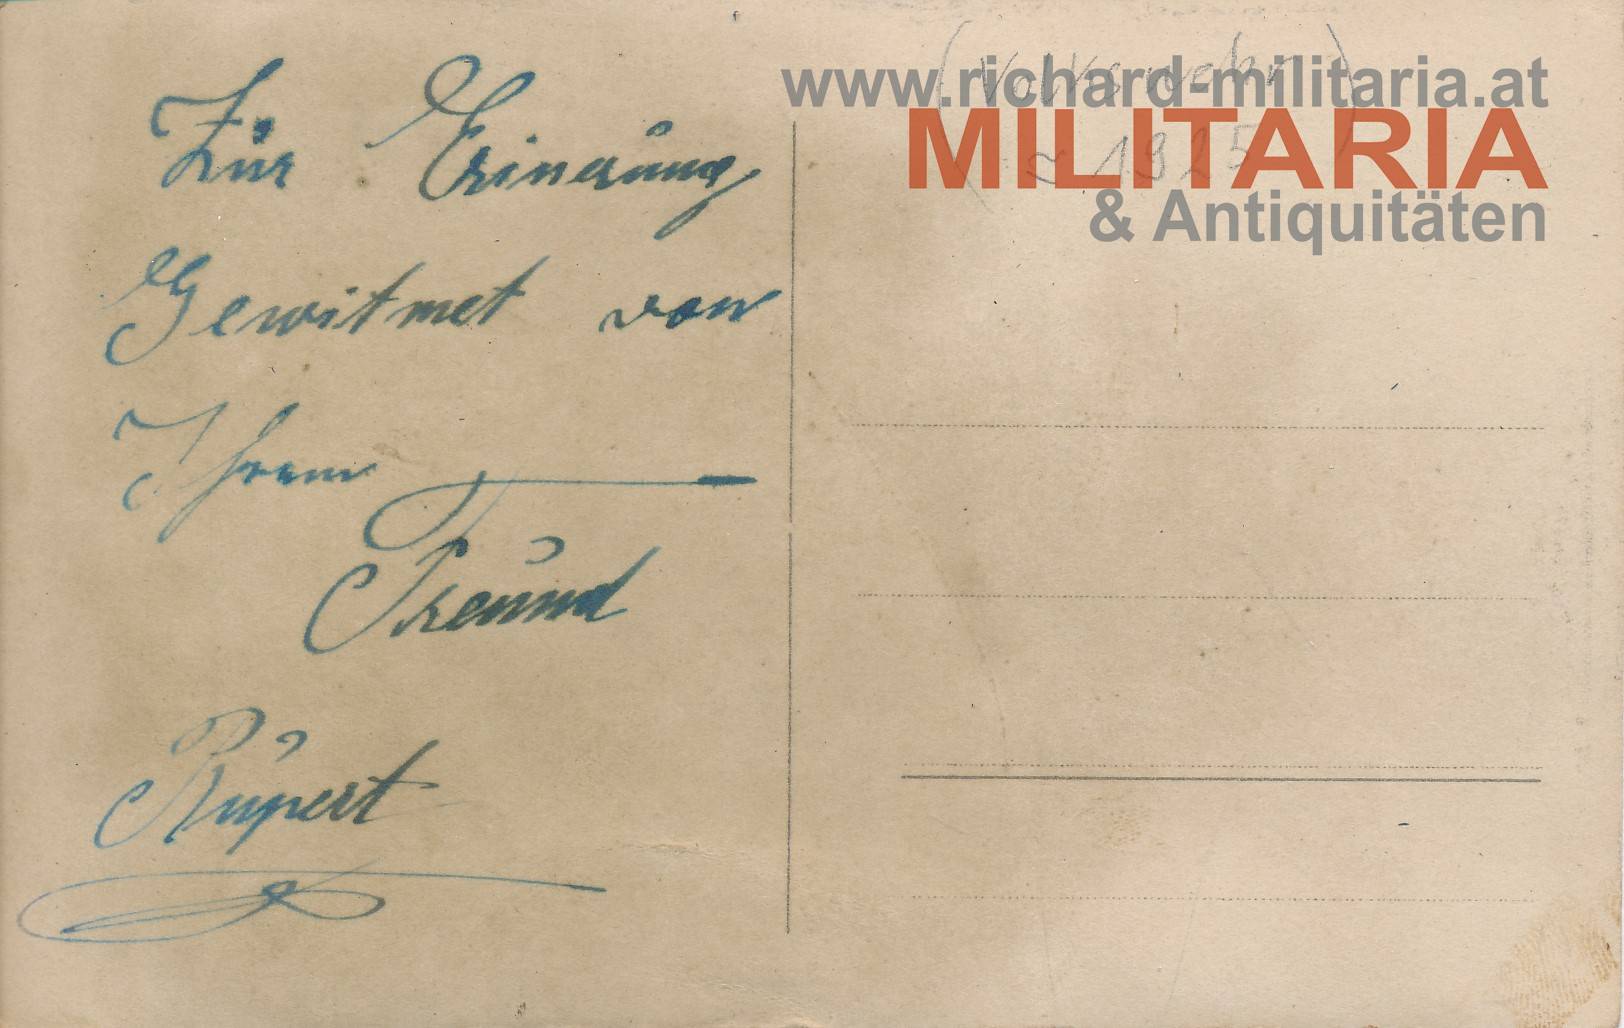 Zur Erinerung
Gewitmet von
Ihrem
Freund
Rupert
(Volkswehr)
~ 1925
www.richard-militaria.at
MILITARIA
& Antiquitäten